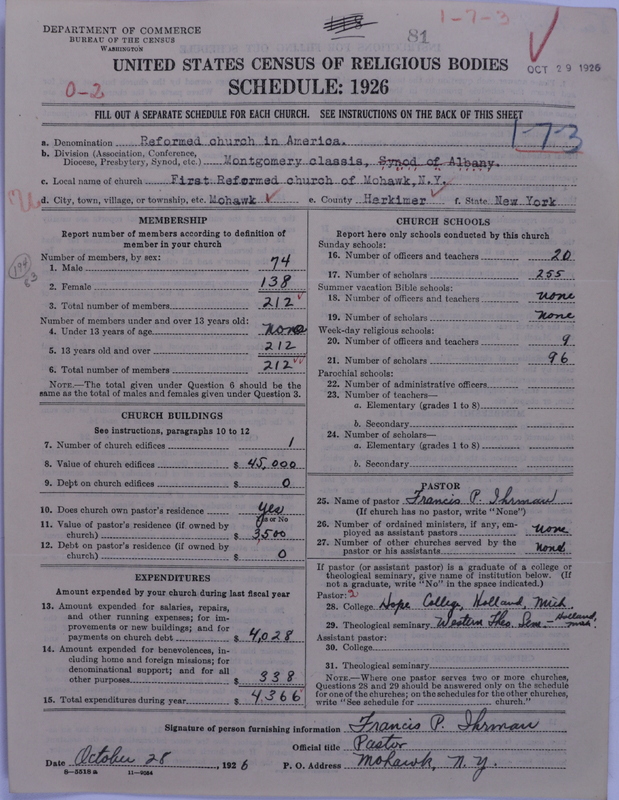 DEPARTMENT OF COMMERCE
BUREAU OF THE CENSUS
WASHINGTON
81
1-7-3
OCT 29 1926
UNITED STATES CENSUS OF RELIGIOUS BODIES
SCHEDULE: 1926
0-2
FILL OUT A SEPARATE SCHEDULE FOR EACH CHURCH. SEE INSTRUCTIONS ON THE BACK OF THIS SHEET
1-7-3
a. Denomination Reformed church in America.
b. Division (Association, Conference, Diocese, Presbytery, Synod, etc.) Montgomery classis, Synod of Albany.
c. Local name of church First Reformed church of Mohawk, N.Y.
d. City, town, village, or township, etc. Mohawk e. County Herkimer f. State New York
MEMBERSHIP
Report number of members according to definition of
member in your church
Number of members, by sex:
1. Male 74
2. Female 138
3. Total number of members 212
Number of members under and over 13 years old:
4. Under 13 years of age None
5. 13 years old and over 212
6. Total number of members 212
NOTE.—The total given under Question 6 should be the
same as the total of males and females given under Question 3.
194
63
CHURCH BUILDINGS
See instructions, paragraphs 10 to 12
7. Number of church edifices 1
8. Value of church edifices $ 45,000
9. Debt on church edifices $ 0
10. Does church own pastor's residence Yes
Yes or No
11. Value of pastor's residence (if owned by
church) $ 3,500
12. Debt on pastor's residence (if owned by
church) $ 0
EXPENDITURES
Amount expended by your church during last fiscal year
13. Amount expended for salaries, repairs,
and other running expenses; for im-
provements or new buildings; and for
payments on church debt $ 4,028
14. Amount expended for benevolences, in-
cluding home and foreign missions; for
denominational support; and for all
other purposes $ 338
15. Total expenditures during year $ 4366
CHURCH SCHOOLS
Report here only schools conducted by this church
Sunday schools:
16. Number of officers and teachers 20
17. Number of scholars 255
Summer vacation Bible schools:
18. Number of officers and teachers none
19. Number of scholars none
Week-day religious schools:
20. Number of officers and teachers 9
21. Number of scholars 96
Parochial schools:
22. Number of administrative officers
23. Number of teachers—
a. Elementary (grades 1 to 8)
b. Secondary
24. Number of scholars—
a. Elementary (grades 1 to 8)
b. Secondary
PASTOR
25. Name of pastor Francis P. Ihrman
(If church has no pastor, write "None")
26. Number of ordained ministers, if any, em-
ployed as assistant pastors none
27. Number of other churches served by the
pastor or his assistants none
If pastor (or assistant pastor) is a graduate of a college or
theological seminary, give name of institution below. (If
not a graduate, write "No" in the space indicated.)
Pastor: 2
28. College Hope College, Holland, Mich.
29. Theological seminary Western Theo. Sem - Holland, Mich.
Assistant pastor:
30. College
31. Theological seminary
NOTE.—Where one pastor serves two or more churches,
Questions 28 and 29 should be answered only on the schedule
for one of the churches; on the schedules for the other churches,
write "See schedule for church."
Signature of person furnishing information Francis P. Ihrman
Official title Pastor
Date October 28, 1926 P. O. Address Mohawk, N. Y.
8-5518a 11-9034